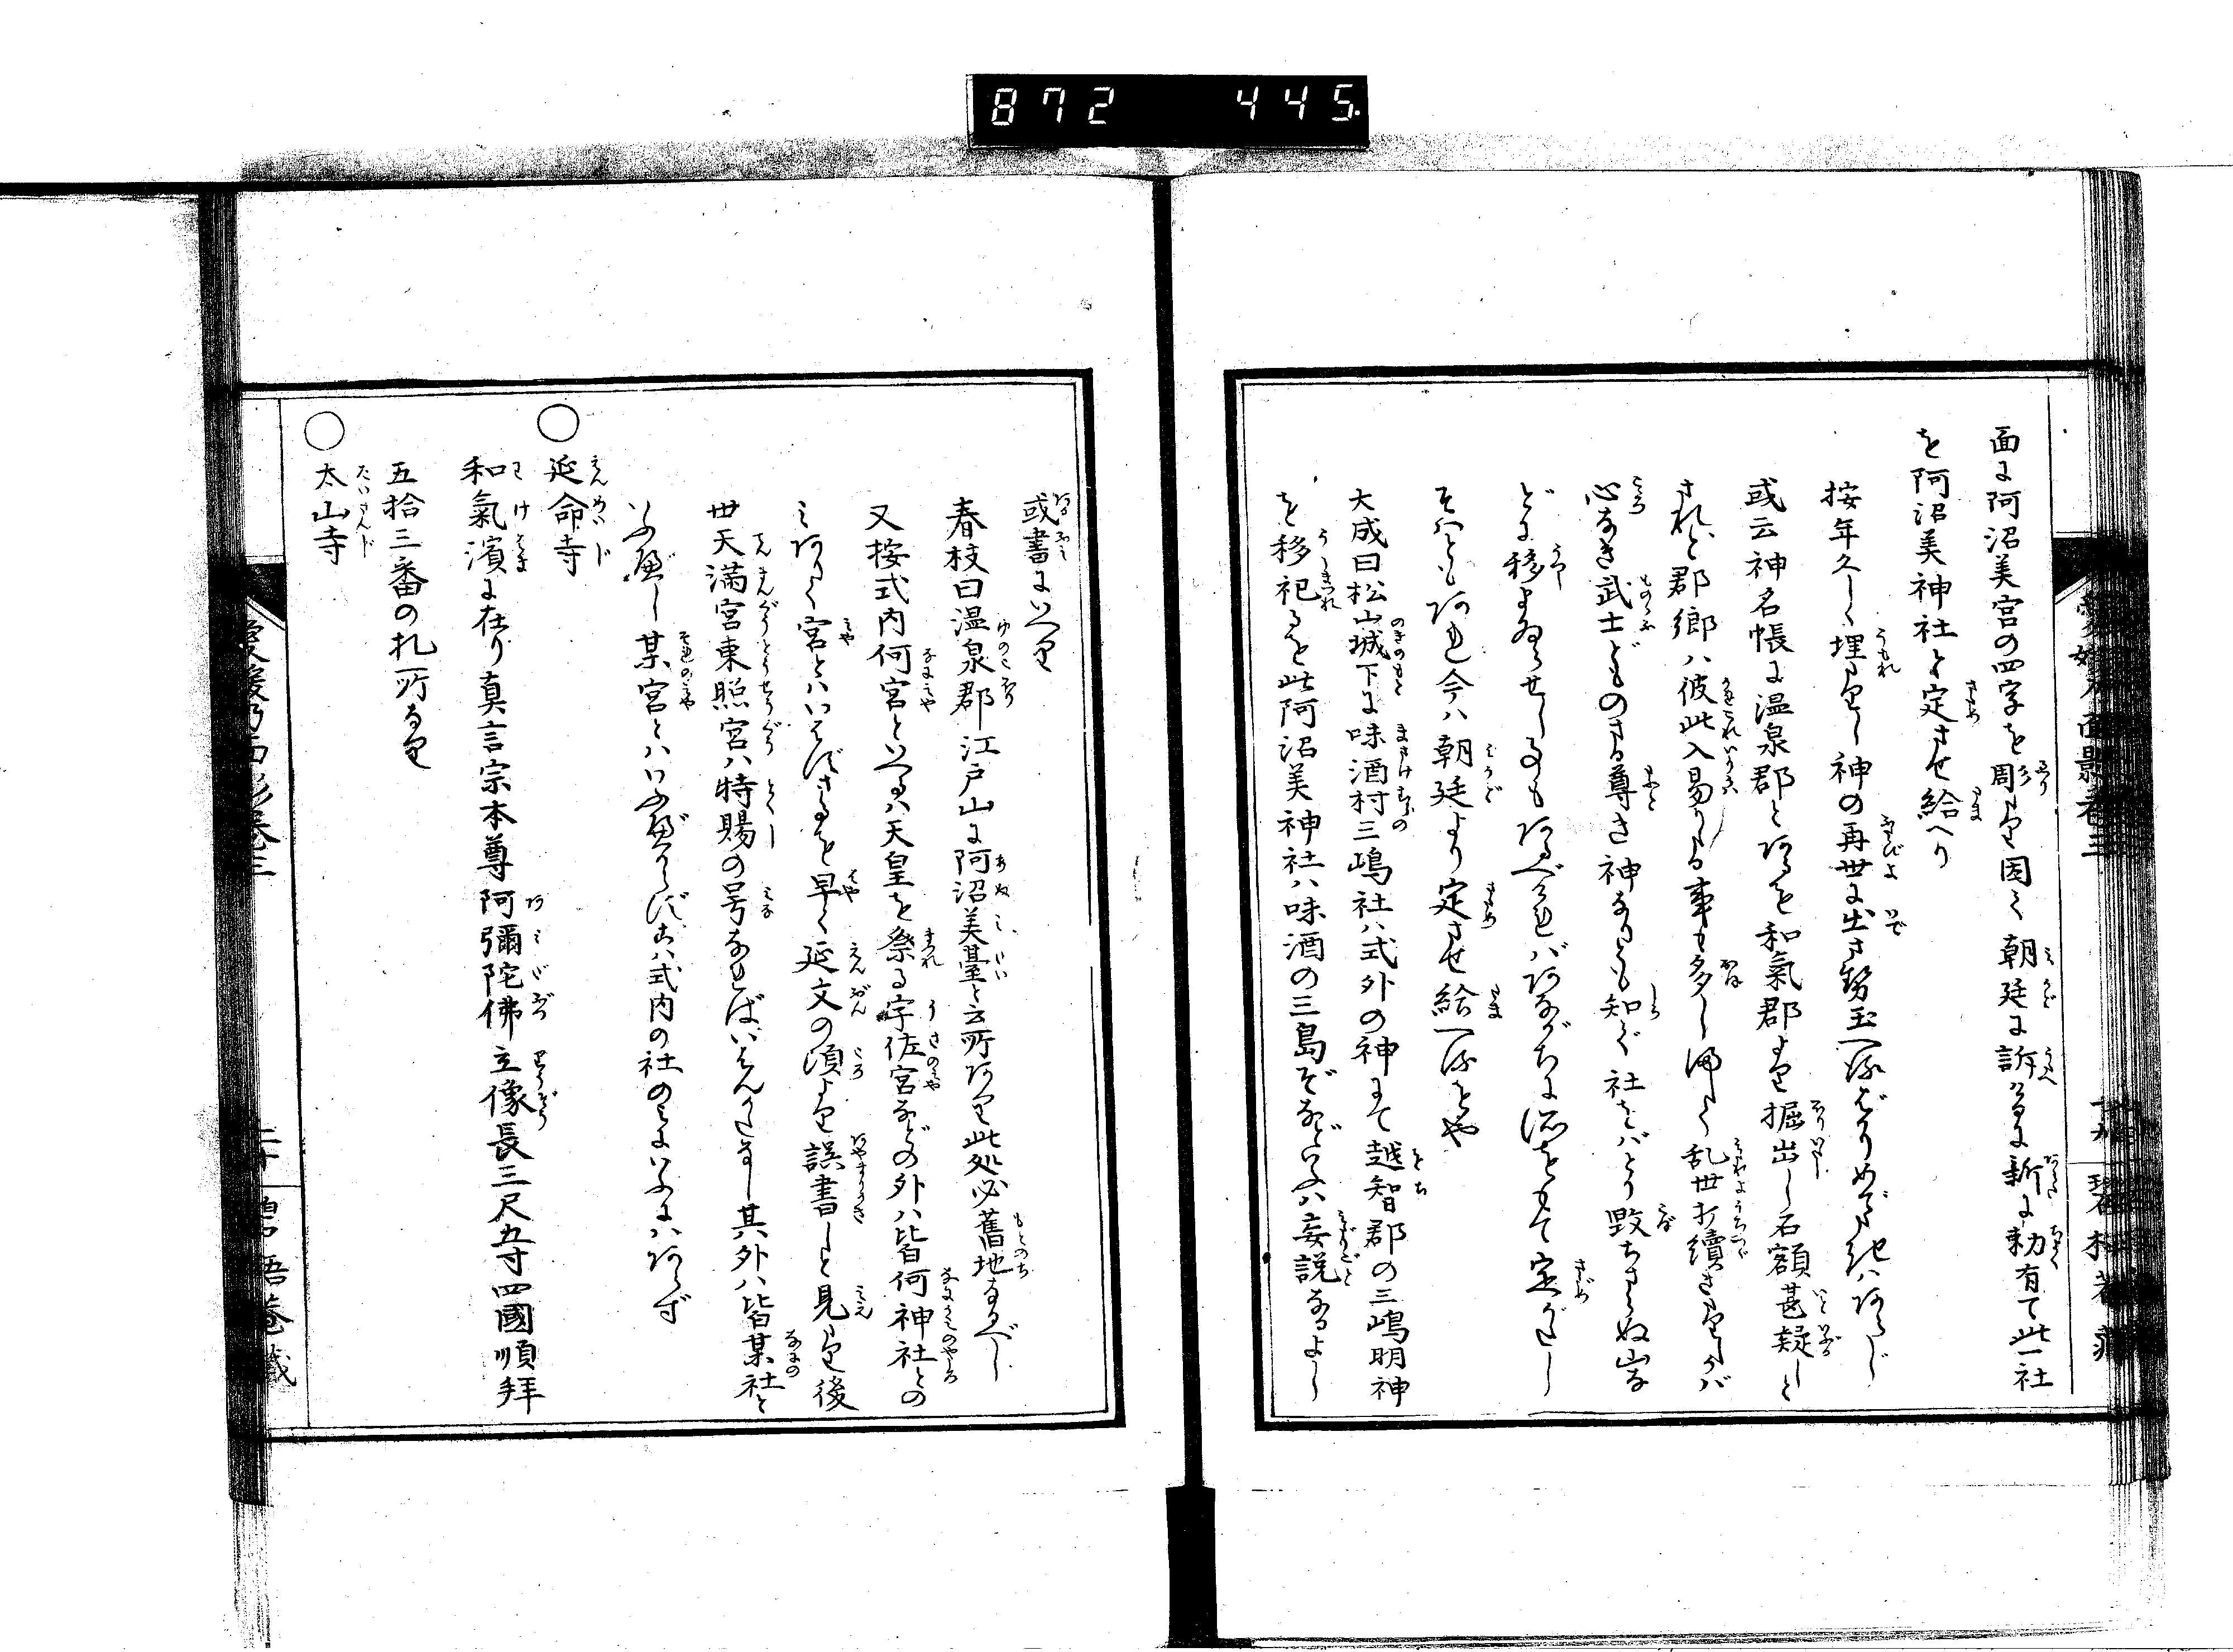 872 445
面に阿沼美宮の四字を周たり因て朝廷に訴けるに新に勅有て此一社
を阿沼美神社と定させ給へり
按年久しく埋たりし神の再世に出させ玉へるばかりめでたきハあらじ
或云神名帳に温泉郡とあるを和氣郡より掘出し石額甚疑しと
されど郡郷ハ彼此入易りたる事も多し
乱世打續きたりしかバ
心なき武士どものさる尊き神なりとも知らで社をバとり毀ちさらぬ山な
どに移しまゐらせし事もあるべけれバあながちに
をもて定がたし
今ハ朝廷より定させ給へるをや
大成曰松山城下に味酒村三嶋社ハ式外の神にて越智郡の三嶋明神
を移祀るを此阿沼美神社ハ味酒の三島ぞなどいふハ妄説なるよし
或書にいへり
春枝曰温泉郡江戸山に阿沼美臺と云所あり此処必舊地なるべし
又按式内何宮といへるハ天皇を祭る宇佐宮などの外ハ皆何神社との
ミありて宮とハいはずさるを早く延文の頃より誤書しと見えたり後
世天滿宮東照宮ハ特賜の号なれば
其外ハ皆某社と
いふべし某宮とハいふべからず
式内の社のミにいふにハあらず
○延命寺
和氣濱に在り真言宗本尊阿彌陀佛立像長三尺五寸四國順拜
五拾三番の札所なり
○太山寺
愛媛乃面影巻三